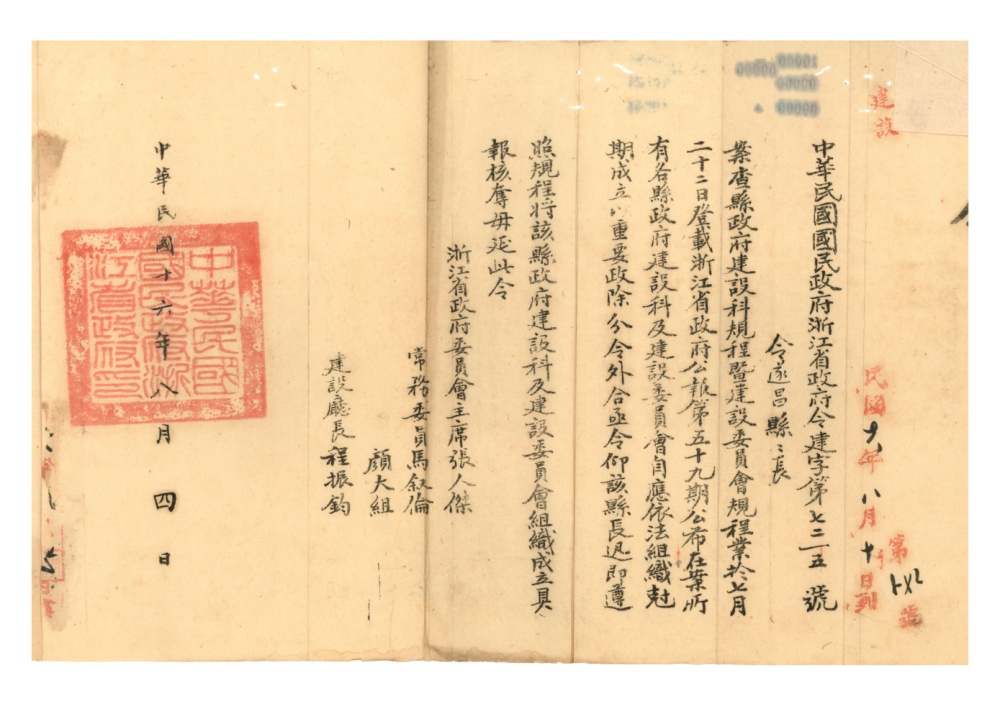 建設
民國十六年八月十日到
第 號
中華民國國民政府浙江省政府令建字第七二一五號
令遂昌縣縣長
案查縣政府建設科規程暨建設委員會規程業於七月
二十二日登載浙江省政府公報第五十九期公布在案所
有各縣政府建設科及建設委員會自應依法組織尅
期成立以重要政除分令外合亟令仰該縣長迅即遵
照規程將該縣政府建設科及建設委員會組織成立具
報核奪毋延此令
浙江省政府委員會主席張人傑
常務委員馬叙倫
顏大組
建設廳長程振鈞
中華民國十六年八月四日
中華民國
國民政府浙
江省政府印